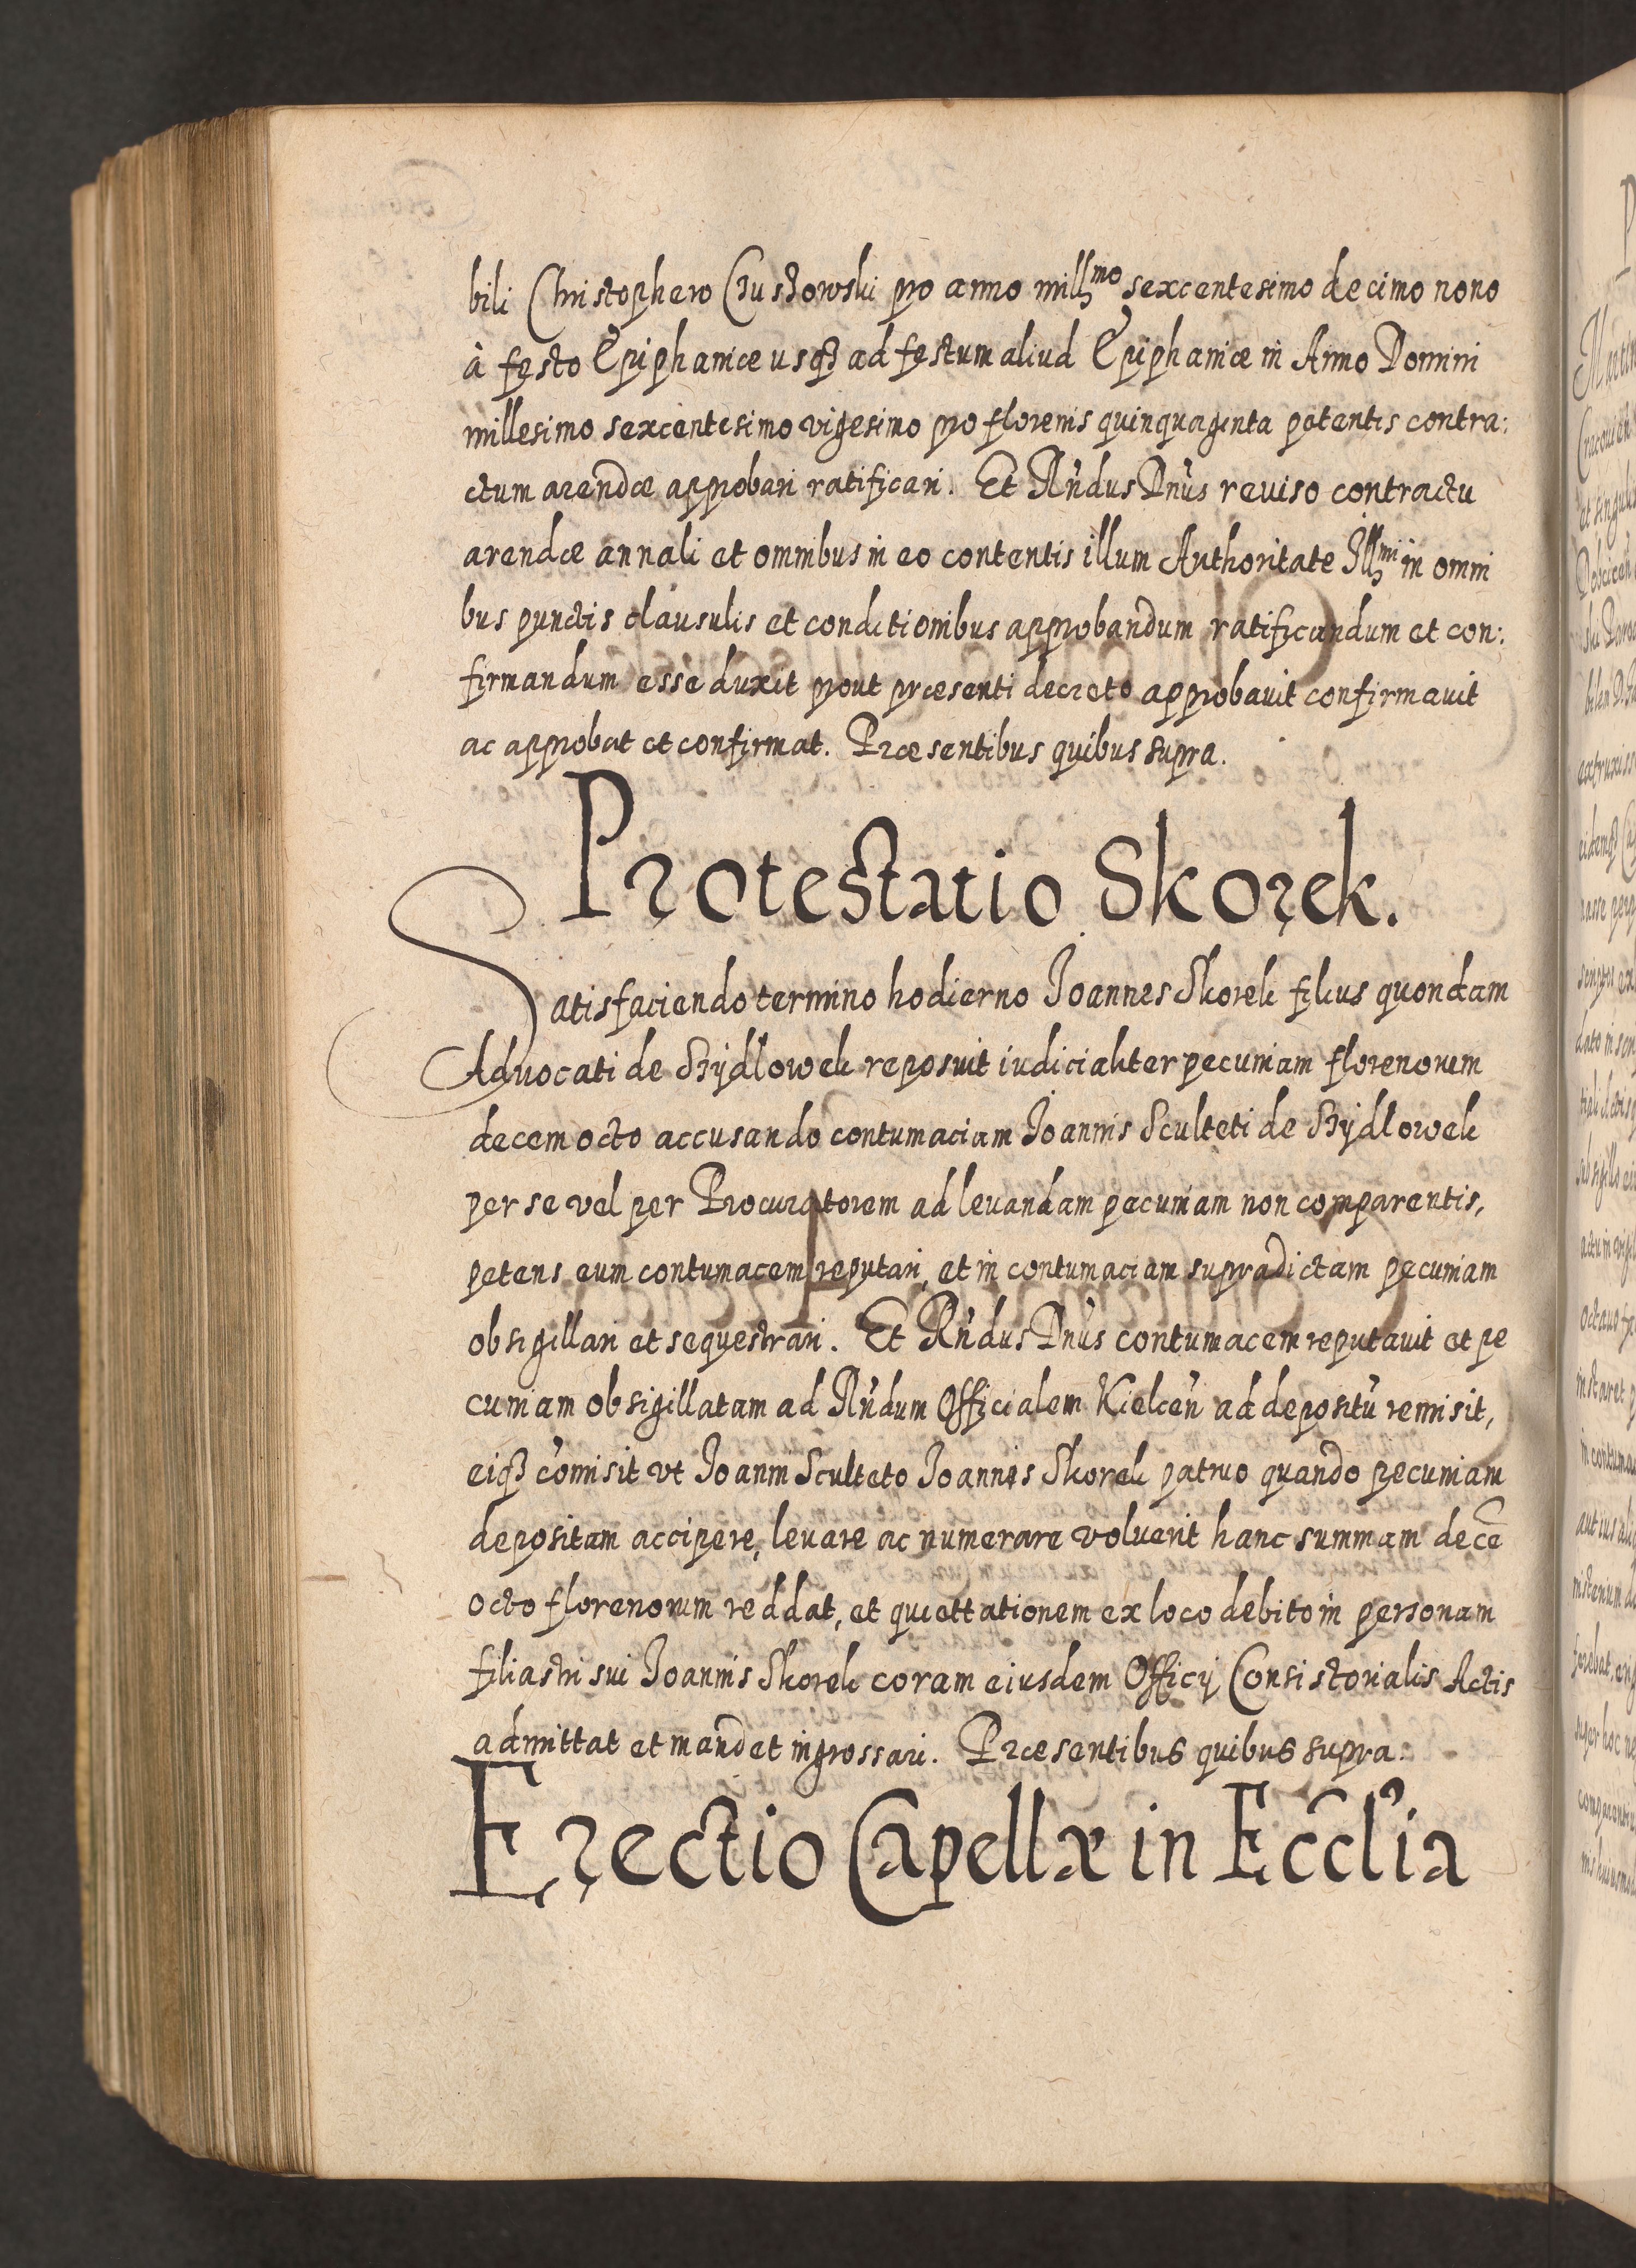 bili Christophero Czuszowski pro anno mill(mo) sexcentesimo decimo nono
à festo Epiphaniæ usq3 ad festum aliud Epiphaniæ in Anno Domini
millesimo sexcentesimo vigesimo pro florenis quinquaginta petentis contra:
ctum arendæ approbari ratificari. Et Rńdus Dńus reviso contractu
arendæ annali et omnibus in eo contentis illum Authoritate Ill(mi) in omni
bus punctis clausulis et conditionibus approbandum ratificandum et con:
firmandum esse duxit prout præsenti decreto approbavit confirmavit
ac approbat et confirmat. Præsentibus quibus supra.
Protestatio Skorek.
Satisfaciendo termino hodierno Joannes Skorek filius quondam
Advocati de Szÿdlowek reposuit iudicialiter pecuniam florenorum
decem octo accusando contumaciam Joannis Sculteti de Szÿdlowek
per se vel per Procuratorem ad levandam pecuniam non comparentis,
petens eum contumacem reputari, et in contumaciam supradictam pecuniam
obsigillari et sequestrari. Et Rńdus Dńus contumacem reputavit et pe
cuniam obsigillatam ad Rńdum Officialem Kielceń ad depositū remisit,
eiq3 cōmisit vt Joanni Sculteto Joannis Skorek patruo quando pecuniam
depositam accipere, levare ac numerare voluerit hanc summam decē
octo florenorum reddat, et quiettationem ex loco debito in personam
filiastri sui Joannis Skorek coram eiusdem Officij Consistorialis Actis
admittat et mandet ingrossari. Præsentibus quibus supra.
Erectio Capellæ in Eccl'ia